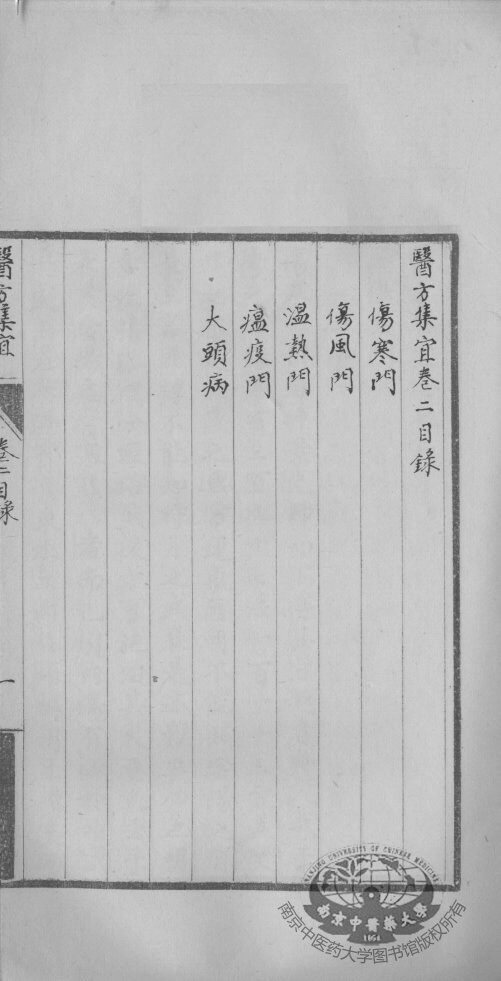 醫方集宜卷二目錄
傷寒門
傷風門
溫熱門
瘟疫門
大頭病
醫方集宜
卷二目錄
一
NANJING UNIVERSITY OF CHINESE MEDICINE
南京中醫藥大學
1954
南京中医药大学图书馆版权所有